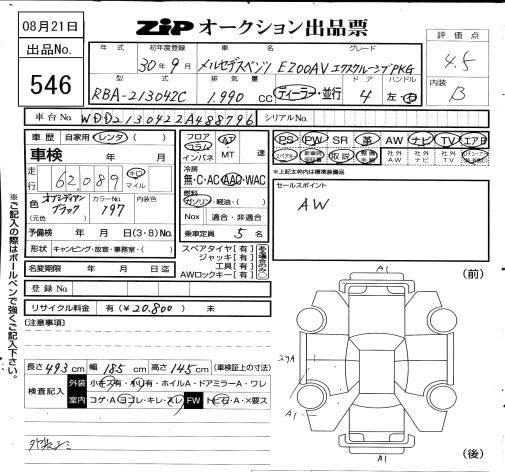 08月21日
ZIPオークション出品票
出品No.
546
年式 初年度登録 車名 グレード
30年9月 メルセデスベンツ E200AV エクスクルーシブPKG
型式 排気量 ドア ハンドル
RBA-213042C 1,990 cc ディーラー・並行 4 左・右
評価点
4.5
内装
B
車台No. WDD2130422A488796 シリアルNo.
車歴 自家用 レンタ ( )
車検 年 月
走行 62,089 キロ マイル
色 オブシディアンブラック カラーNo. 197 内装色
(元色)
予備検 年 月 日(3・8)No.
形状 キャンピング・放宣・事務室・( )
名変期限 年 月 日迄
登録No.
リサイクル料金 有(¥20,800) 未
フロア コラム インパネ
AT MT 速
冷房
無・C・AC AAC・WAC
燃料
ガソリン・軽油・( )
Nox 適合・非適合
乗車定員 5名
スペアタイヤ【有】
ジャッキ【有】
工具【有】
AWロックキー【有】
ある場合のみ○
PS PW SR 革 AW ナビ TV エアB
スペアキー 取説 社外AW 社外ナビ 社外TV
※上記太枠内は標準装備品
セールスポイント
AW
【注意事項】
長さ493cm 幅185cm 高さ145cm (車検証上の寸法)
検査記入 外装 小キズ有・小凹有・ホイルA・ドアミラーA・ワレ
室内 コゲ・A ヨゴレ・キレ・スレ FW トビ石・A・X要ス
※ご記入の際はボールペンで強くご記入下さい。
A1
(前)
A1
A1
(後)